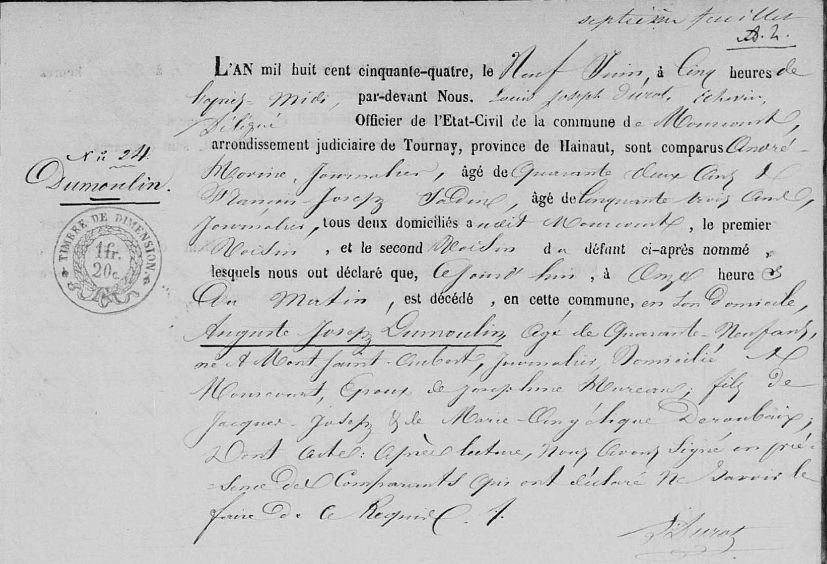 septième feuillet
L'AN mil huit cent cinquante-quatre, le Neuf Juin, à Cinq heures de
l'après-midi, par-devant Nous, Louis Joseph Durot, Echevin,
Délégué Officier de l'Etat-Civil de la commune de Mourcourt,
arrondissement judiciaire de Tournay, province de Hainaut, sont comparus André
Morine, Journalier, âgé de Quarante deux Ans &
N° 24
Dumoulin.
François-Joseph âgé de Cinquante trois Ans,
Journalier, tous deux domiciliés audit Mourcourt, le premier
Voisin, et le second Voisin du défunt ci-après nommé,
TIMBRE DE DIMENSION
1 fr.
20 c.
lesquels nous ont déclaré que, Cejourd'hui, à Onze heures
Du Matin, est décédé, en cette commune, en son Domicile,
Auguste Joseph Dumoulin, âgé de Quarante-Neuf ans,
né à Mont-Saint-Aubert, Journalier, Domicilié à
Mourcourt, Epoux de Joséphine Mureau; fils de
Jacques-Joseph & de Marie-Angélique Deroubaix;
Dont Acte: Après lecture, Nous Avons Signé en pré-
sence des Comparants qui ont déclaré Ne savoir le
faire de ce Requis.
Durot